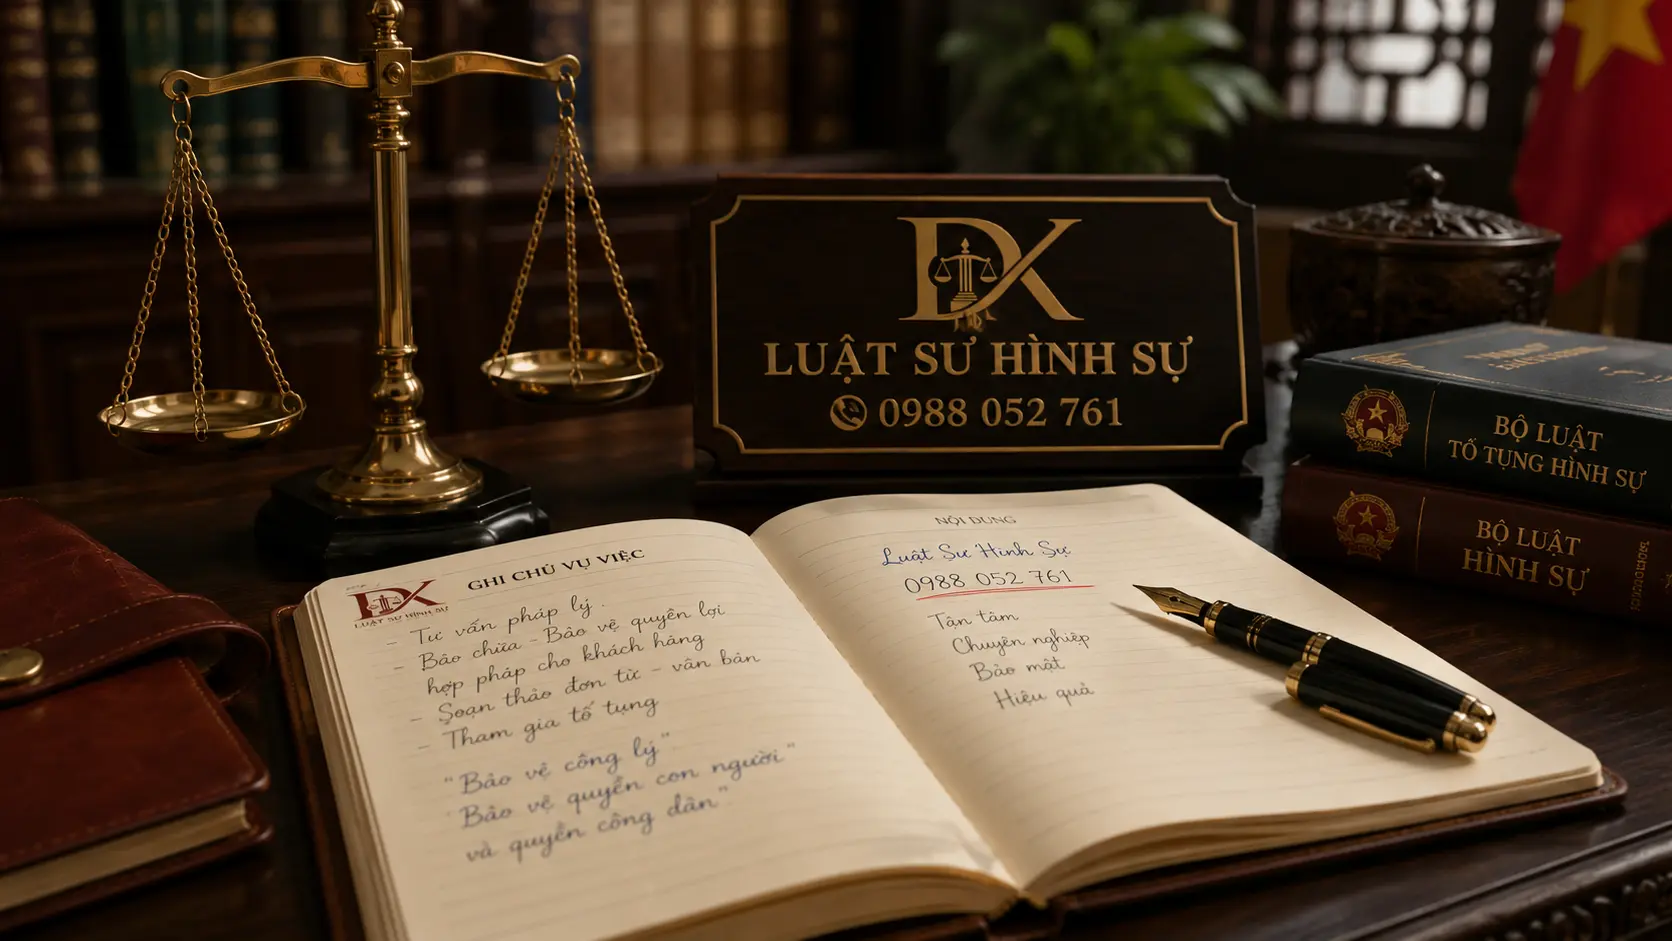 DK
LUẬT SƯ HÌNH SỰ
0988 052 761
BỘ LUẬT
TỐ TỤNG HÌNH SỰ
BỘ LUẬT
HÌNH SỰ
DK
LUẬT SƯ HÌNH SỰ
GHI CHÚ VỤ VIỆC
- Tư vấn pháp lý.
- Bào chữa - Bảo vệ quyền lợi
hợp pháp cho khách hàng
- Soạn thảo đơn từ - văn bản
- Tham gia tố tụng
"Bảo vệ công lý"
"Bảo vệ quyền con người"
và quyền công dân"
NỘI DUNG
Luật Sư Hình Sự
0988 052 761
Tận tâm
Chuyên nghiệp
Bảo mật
Hiệu quả